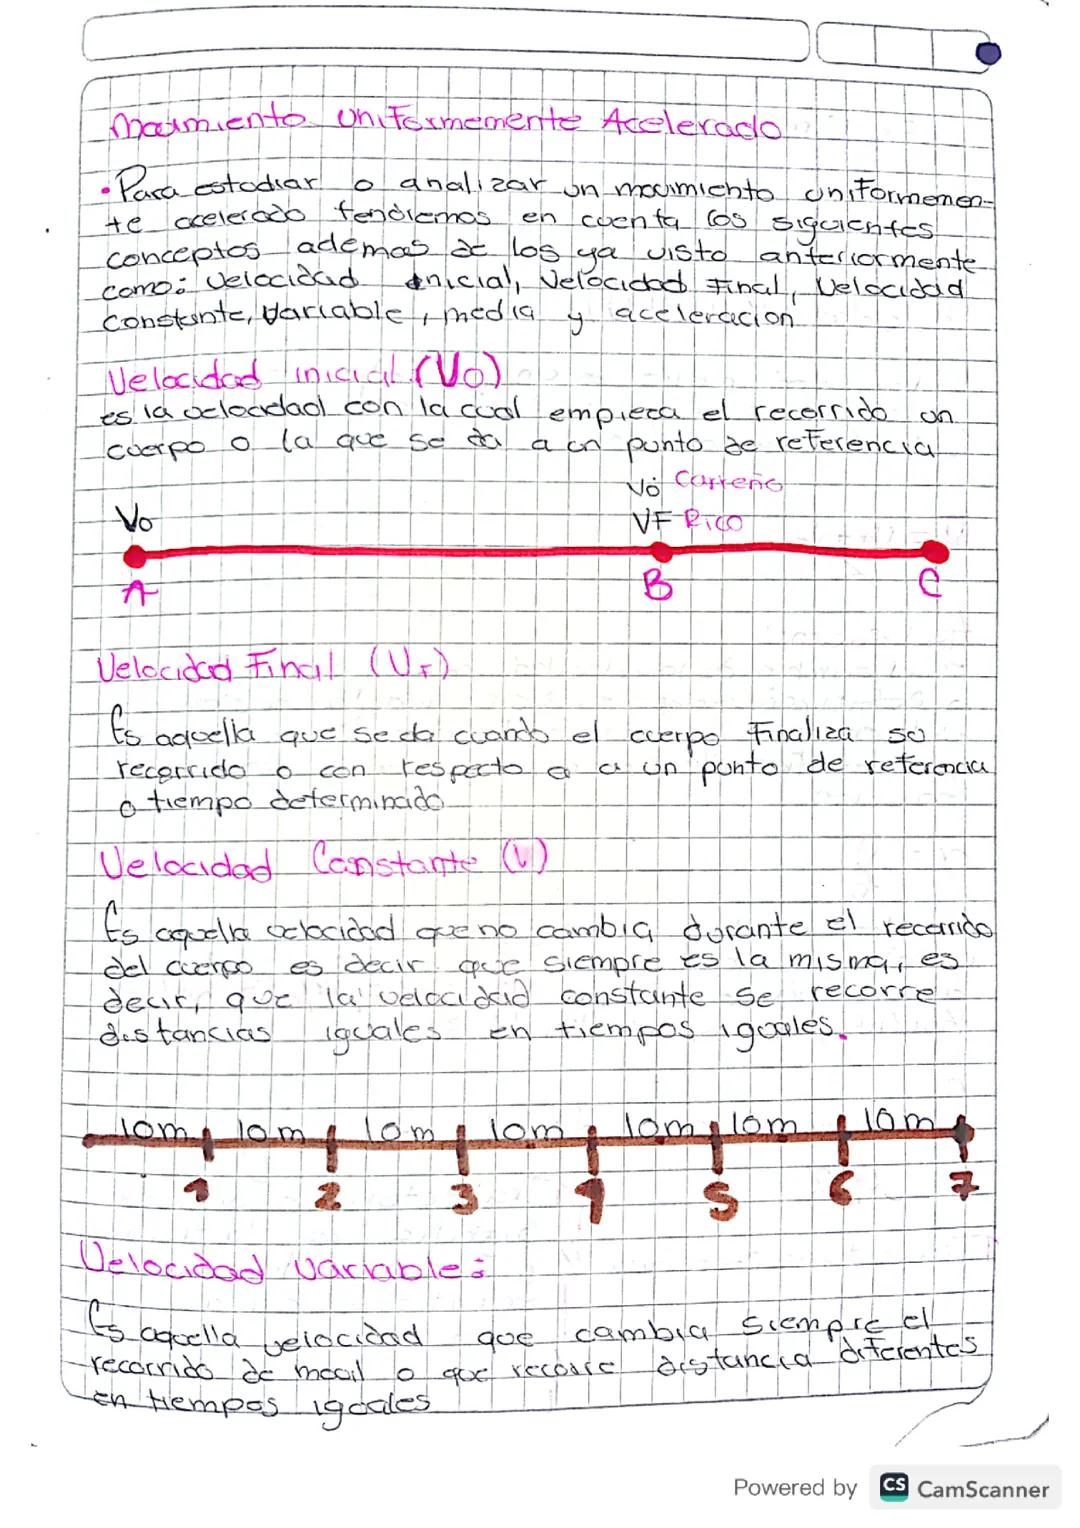 Movimiento uniformemente Acelerado
• Para estudiar o analizar un movimiento uniformemen-
te acelerado tendremos en cuenta los siguientes
conceptos ademas de los ya visto anteriormente
como: Velocidad inicial, Velocidad Final, Velocidad
Constante, Variable, media y aceleracion
Velocidad inicial (Vo)
es la velocidad con la cual empieza el recorrido un
cuerpo o la que se da a un punto de referencia
Vo Carreño
Vo VF Rico
A B C
Velocidad Final (VF)
Es aquella que se da cuando el cuerpo Finaliza su
recorrido o con respecto a a un punto de referencia
o tiempo determinado
Velocidad Constante (V)
Es aquella velocidad que no cambia durante el recorrido
del cuerpo es decir que siempre es la misma, es
decir, que la velocidad constante se recorre
distancias iguales en tiempos iguales.
10m 10m 10m 10m 10m 10m 10m
1 2 3 4 5 6 7
Velocidad variable:
Es aquella velocidad que cambia siempre el
recorrido de movil o que recorre distancia diferentes
en tiempos iguales
Powered by CS CamScanner